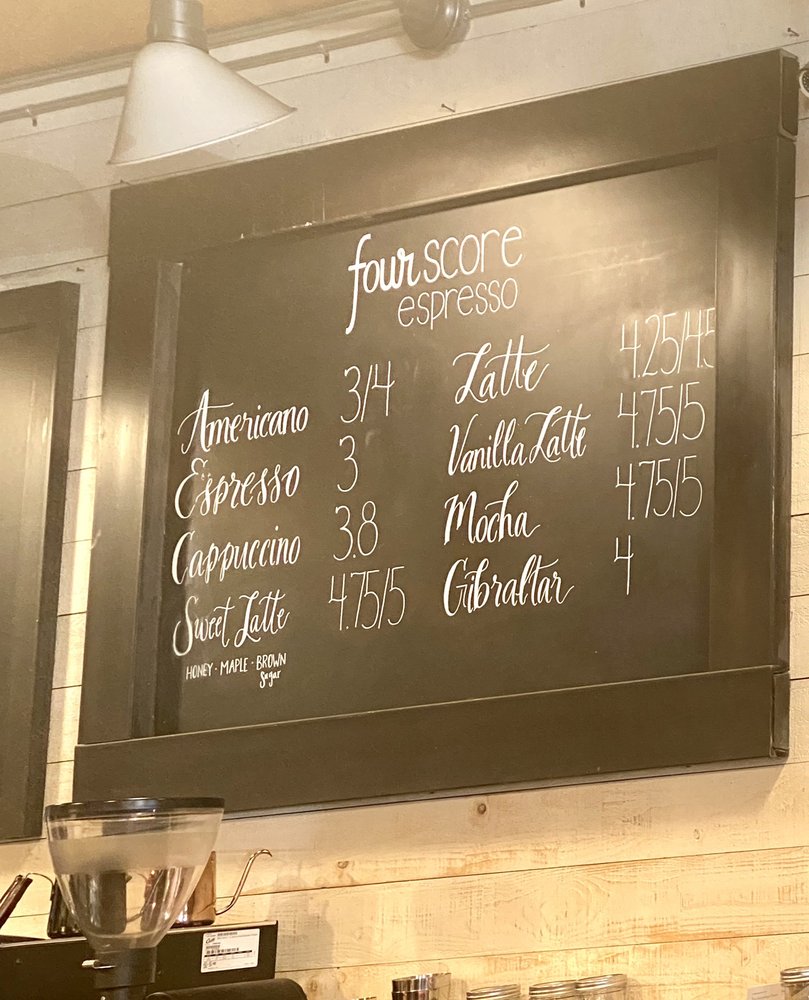 fourscore
espresso
Americano 3/4
Espresso 3
Cappuccino 3.8
Sweet Latte 4.75/5
HONEY · MAPLE · BROWN
Sugar
Latte 4.25/4.5
Vanilla Latte 4.75/5
Mocha 4.75/5
Gibraltar 4